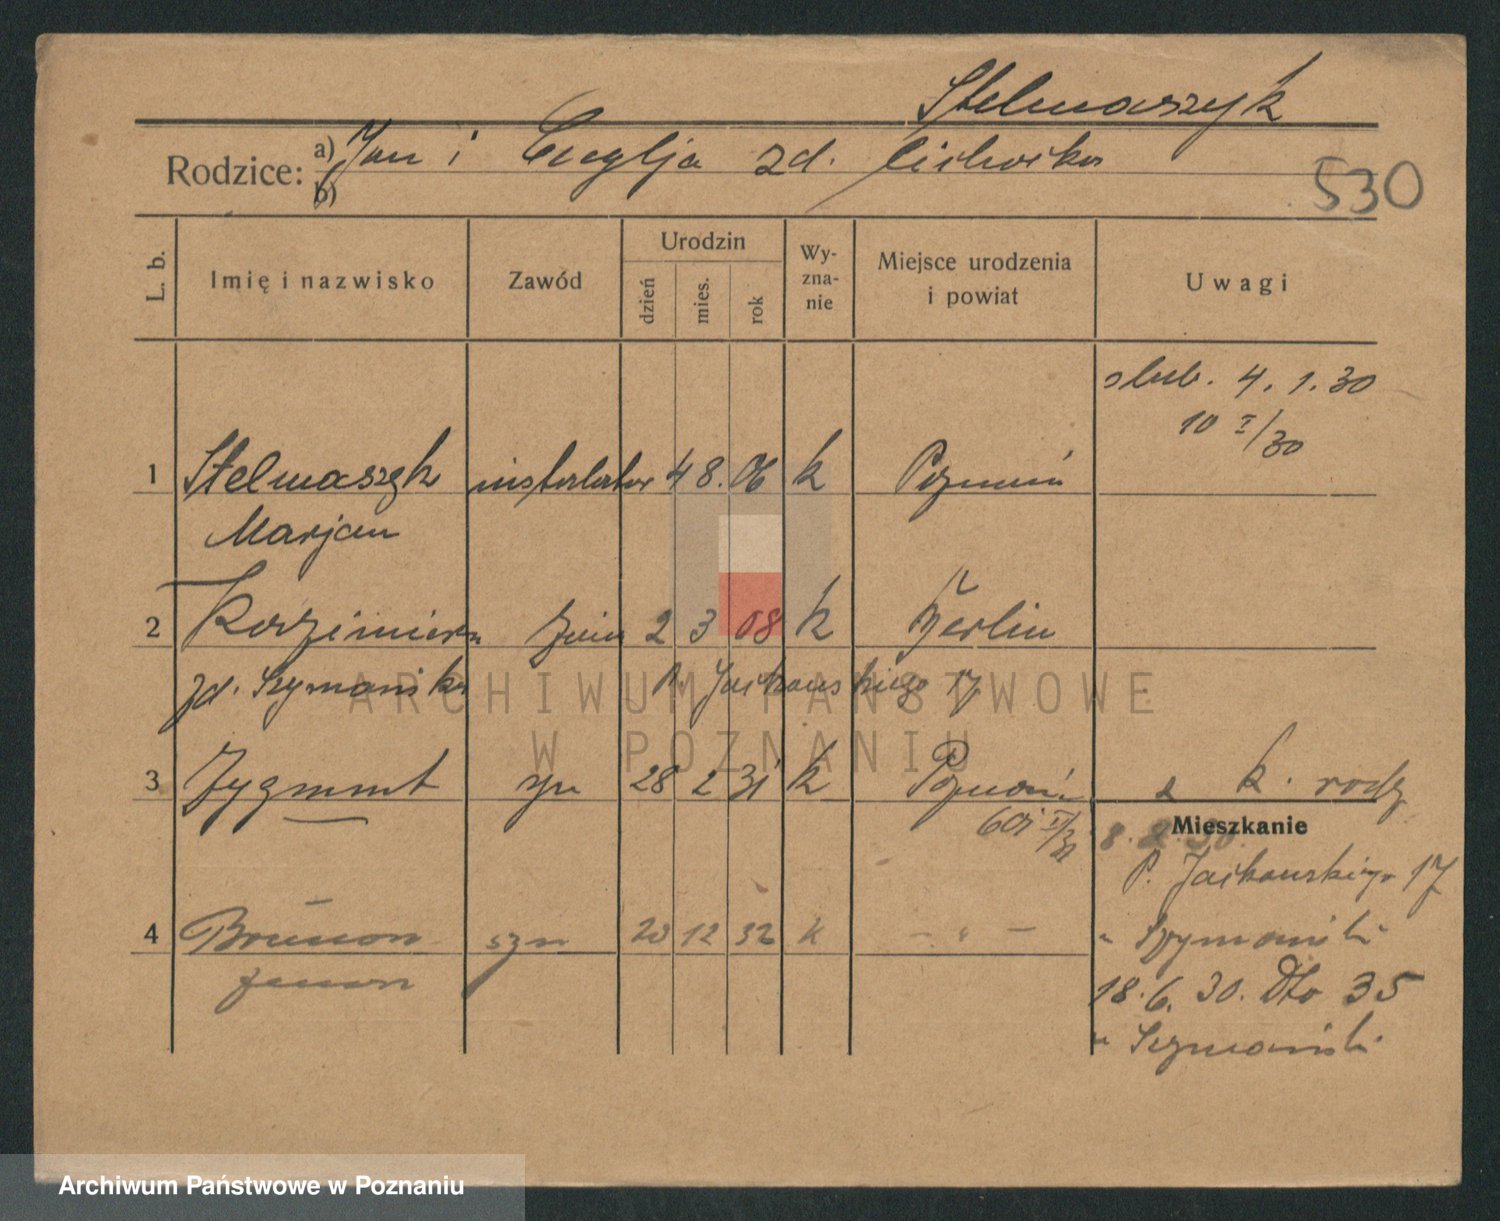 Stelmaszyk
Rodzice: a) Jan i Cecylja zd. Cichocka
b)
530
L. b.
Imię i nazwisko
Zawód
Urodzin
dzień
mies.
rok
Wy-
zna-
nie
Miejsce urodzenia
i powiat
Uwagi
slub. 4. 1. 30
10 I/30
1 Stelmaszyk instalator 4 8. 06 k Poznań
Marjan
2 Kazimiera żona 2 3 08 k Berlin
zd. Szymańska P. Jackowskiego 17
3 Zygmunt syn 28 2 31 k Poznań
k. rodz
Mieszkanie
8. 2. 30.
P. Jackowskiego 17
4 Brunon syn 20 12 32 k - „ -
Zenon
" Szymański
18. 6. 30. Dto 35
" Szymański
ARCHIWUM PAŃSTWOWE
W POZNANIU
Archiwum Państwowe w Poznaniu